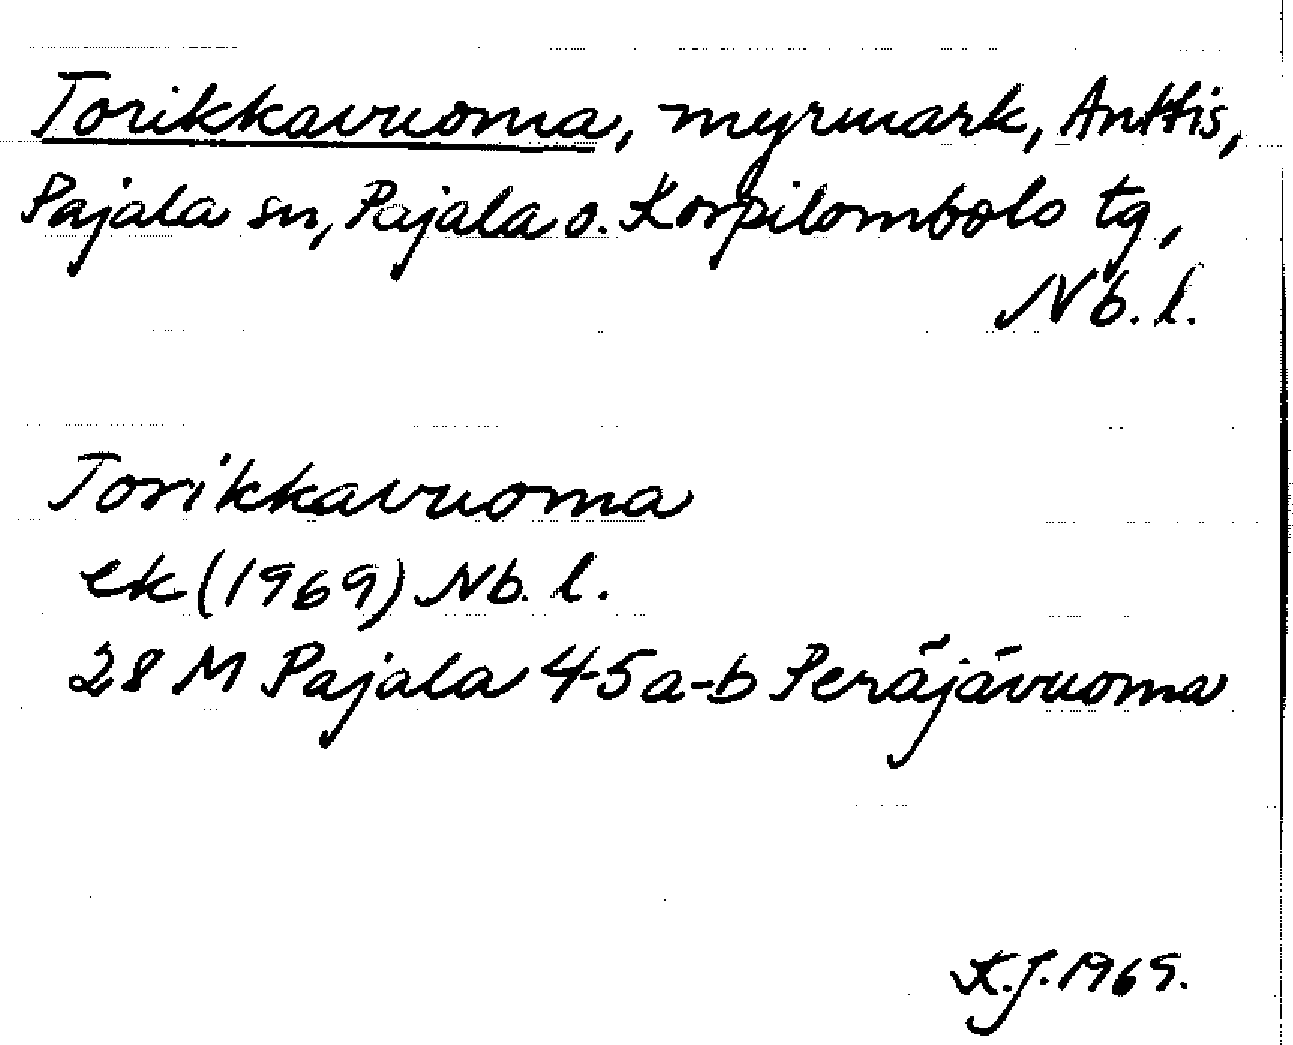 Torikkavuoma, myrmark, Anttis,
Pajala sn, Pajala o. Korpilombolo tg,
Nb. l.
Torikkavuoma
ek (1969) Nb. l.
28 M Pajala 4-5 a-b Peräjävuoma
K.J. 1969.